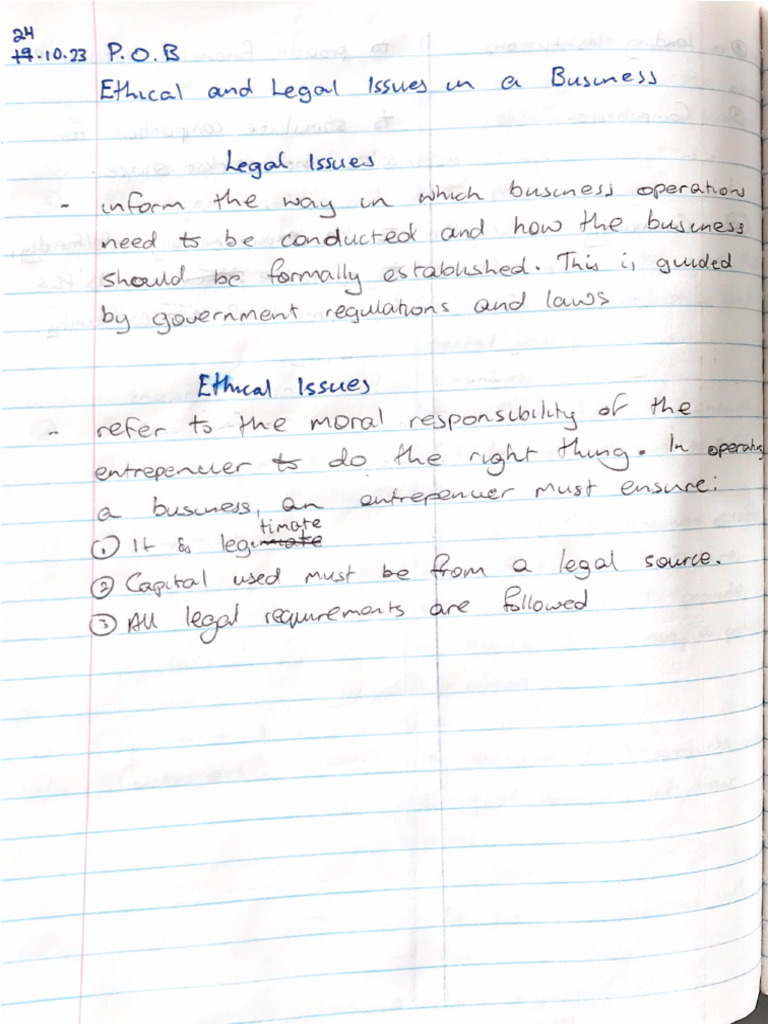 24
19.10.23 P.O.B
Ethical and Legal Issues in a Business
Legal Issues
- inform the way in which business operations
need to be conducted and how the business
should be formally established. This is guided
by government regulations and laws
Ethical Issues
- refer to the moral responsibility of the
entrepenuer to do the right thing. In operating
a business, an entrepenuer must ensure:
timate
① It is legimate
② Capital used must be from a legal source.
③ All legal requirements are followed